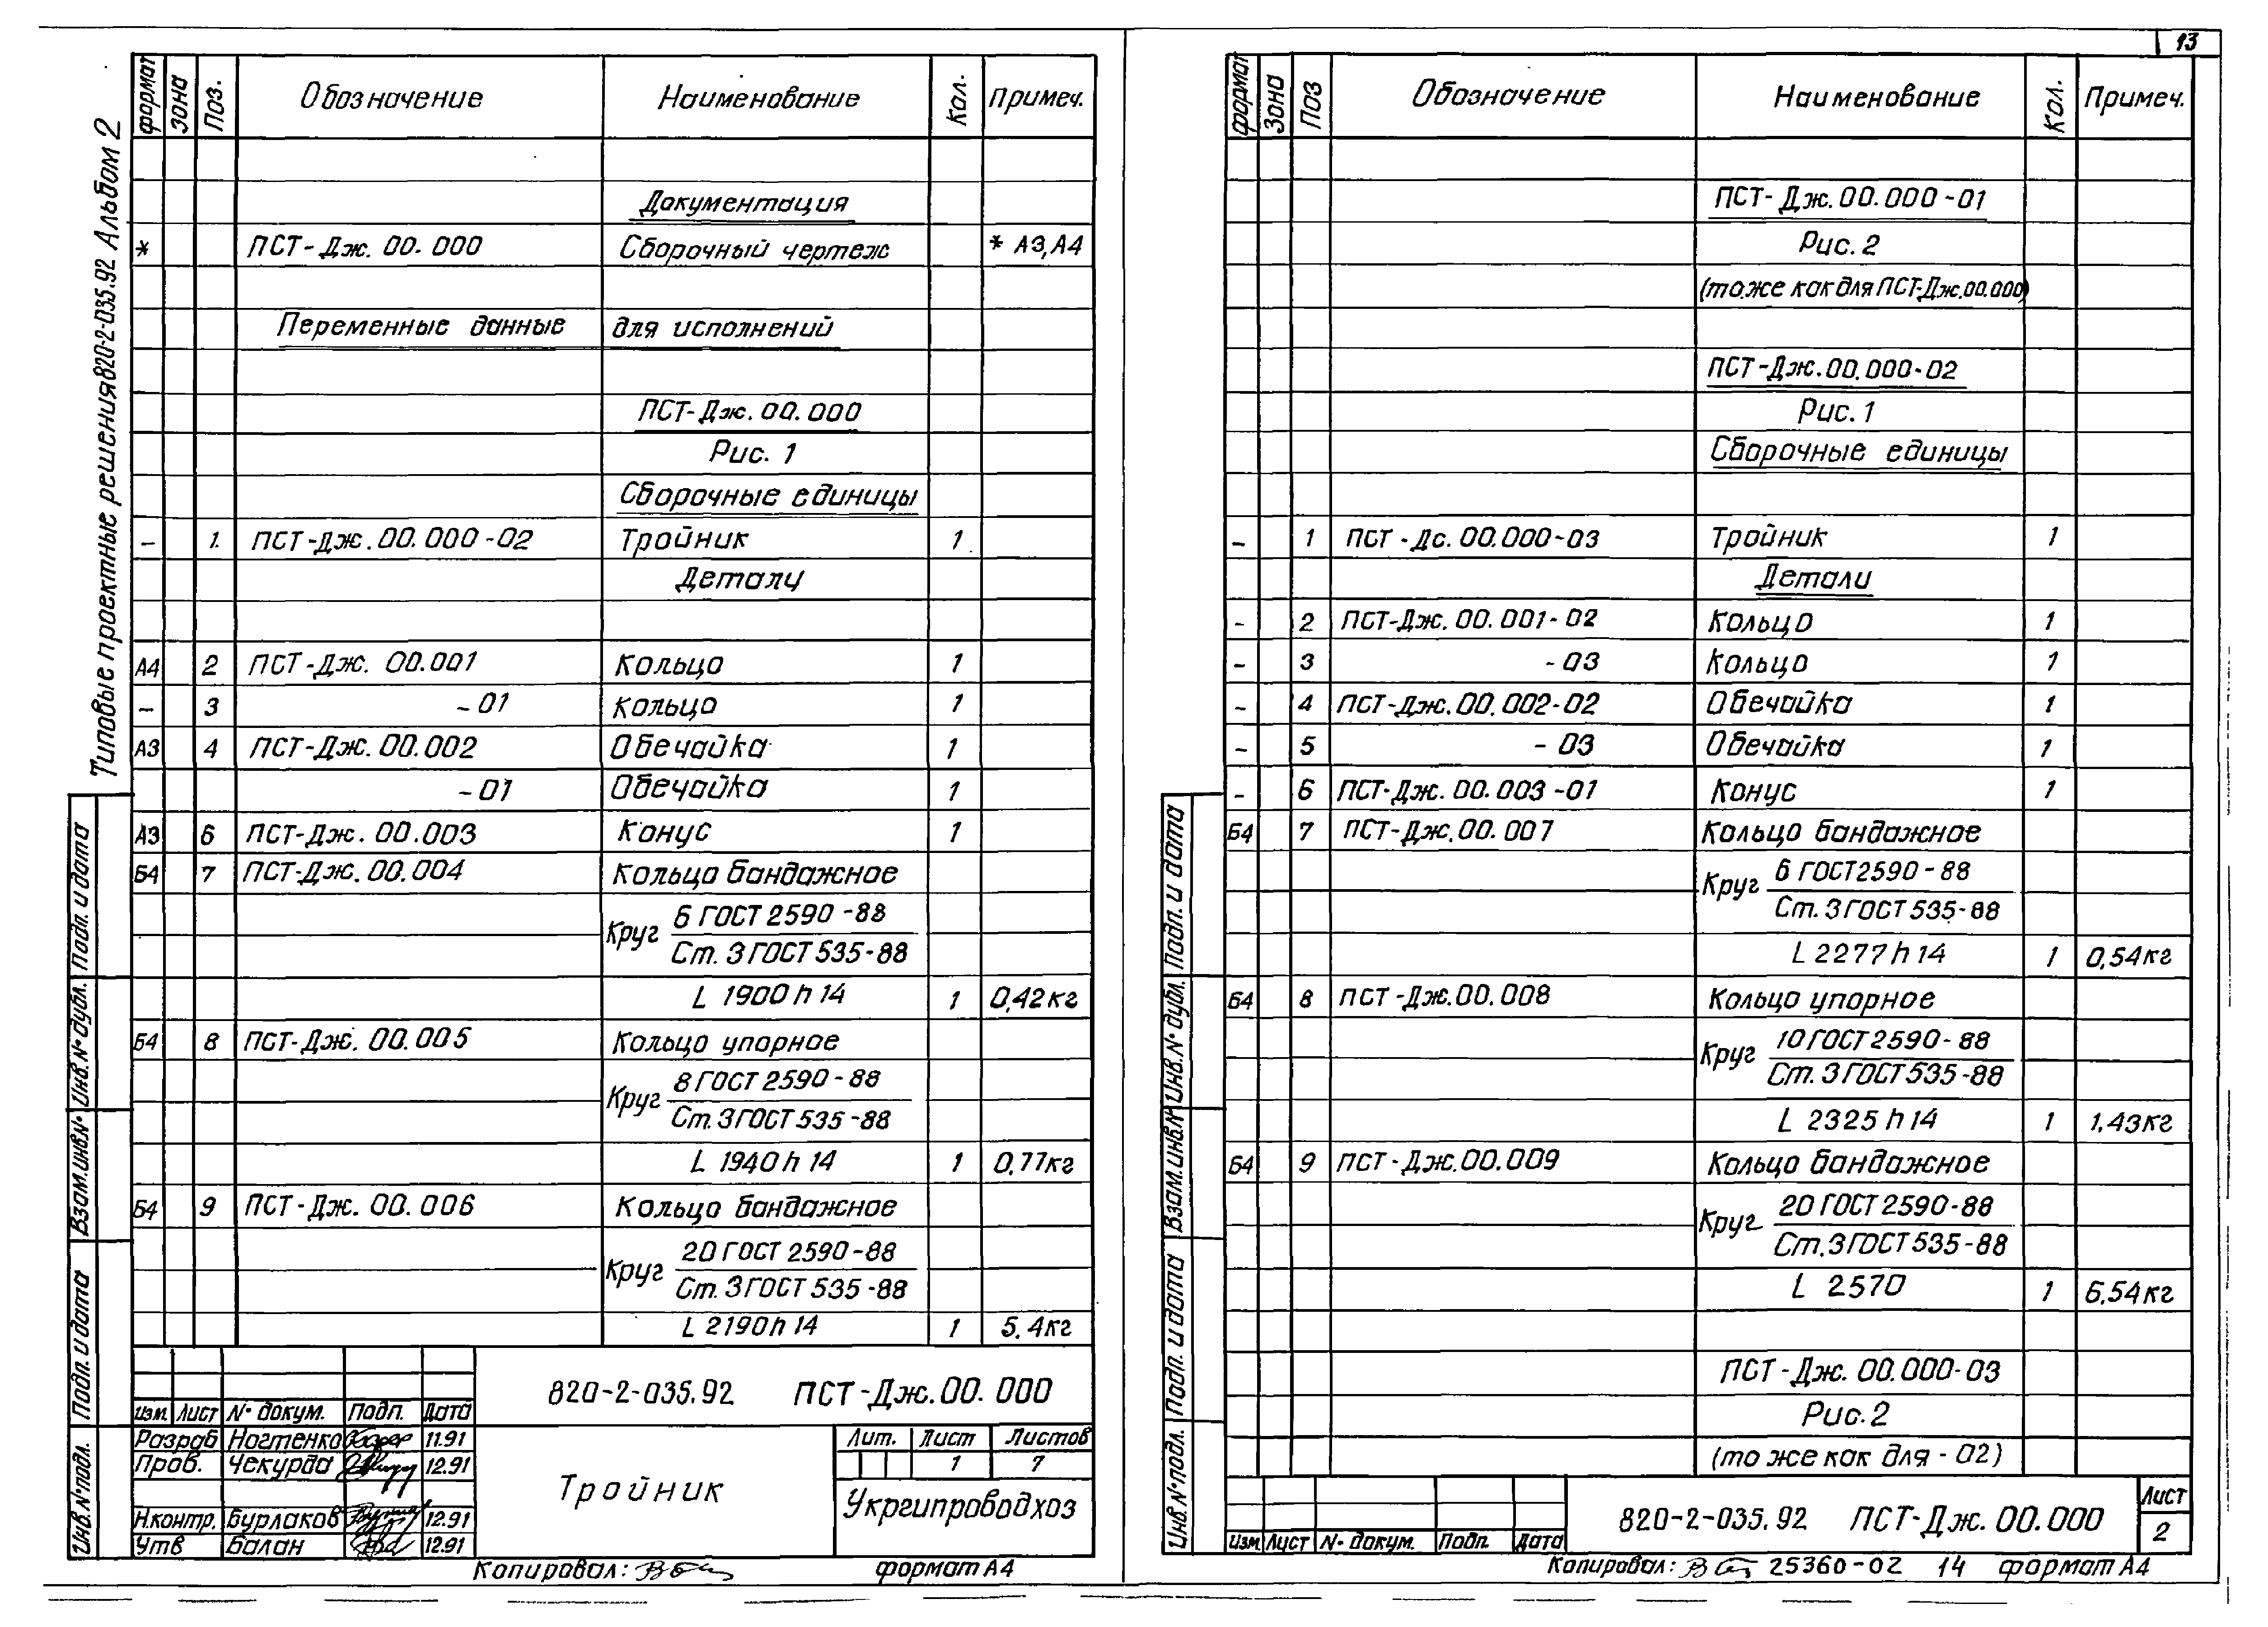 Типовые проектные решения 820-2-035.92 Альбом 2
формат Зона Поз. Обозначение Наименование Кол. Примеч.
Документация
* ПСТ-Дж. 00. 000 Сборочный чертеж * А3, А4
Переменные данные для исполнений
ПСТ-Дж. 00. 000
Рис. 1
Сборочные единицы
– 1. ПСТ-Дж. 00. 000-02 Тройник 1
Детали
А4 2 ПСТ-Дж. 00.001 Кольцо 1
– 3 -01 Кольцо 1
А3 4 ПСТ-Дж. 00.002 Обечайка 1
-01 Обечайка 1
А3 6 ПСТ-Дж. 00.003 Конус 1
Б4 7 ПСТ-Дж. 00.004 Кольцо бандажное
Круг 6 ГОСТ 2590-88
Ст. 3 ГОСТ 535-88
L 1900 h 14 1 0,42кг
Б4 8 ПСТ-Дж. 00.005 Кольцо упорное
Круг 8 ГОСТ 2590-88
Ст. 3 ГОСТ 535-88
L 1940 h 14 1 0,77кг
Б4 9 ПСТ-Дж. 00. 006 Кольцо бандажное
Круг 20 ГОСТ 2590-88
Ст. 3 ГОСТ 535-88
L 2190 h 14 1 5,4кг
Подп. и дата
Инв. № дубл.
Взам. инв. №
Подп. и дата
Инв. № подл.
820-2-035.92 ПСТ-Дж. 00. 000
Изм. Лист № докум. Подп. Дата
Разраб Ногтенко 11.91
Пров. Чекурда 12.91
Н.контр. Бурлаков 12.91
Утв Балан 12.91
Тройник
Лит. Лист Листов
1 7
Укргипроводхоз
Копировал: формат А4
13
формат Зона Поз Обозначение Наименование Кол. Примеч.
ПСТ-Дж. 00. 000-01
Рис. 2
(то же как для ПСТ-Дж. 00.000)
ПСТ-Дж. 00. 000-02
Рис. 1
Сборочные единицы
– 1 ПСТ-Дс. 00.000-03 Тройник 1
Детали
- 2 ПСТ-Дж. 00. 001-02 Кольцо 1
- 3 -03 Кольцо 1
- 4 ПСТ-Дж. 00. 002-02 Обечайка 1
- 5 -03 Обечайка 1
- 6 ПСТ-Дж. 00. 003-01 Конус 1
Б4 7 ПСТ-Дж. 00. 007 Кольцо бандажное
Круг 6 ГОСТ 2590-88
Ст. 3 ГОСТ 535-88
L 2277 h 14 1 0,54кг
Б4 8 ПСТ-Дж. 00. 008 Кольцо упорное
Круг 10 ГОСТ 2590-88
Ст. 3 ГОСТ 535-88
L 2325 h 14 1 1,43кг
Б4 9 ПСТ-Дж. 00. 009 Кольцо бандажное
Круг 20 ГОСТ 2590-88
Ст. 3 ГОСТ 535-88
L 2570 1 6,54кг
ПСТ-Дж. 00. 000-03
Рис. 2
(то же как для - 02)
Подп. и дата
Инв. № дубл.
Взам. инв. №
Подп. и дата
Инв. № подл.
Изм Лист № докум. Подп. Дата
820-2-035.92 ПСТ-Дж. 00. 000
Лист
2
Копировал: 25360-02 14 формат А4